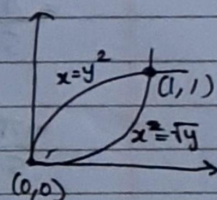 x=y²
(1,1)
x=√y
(0,0)